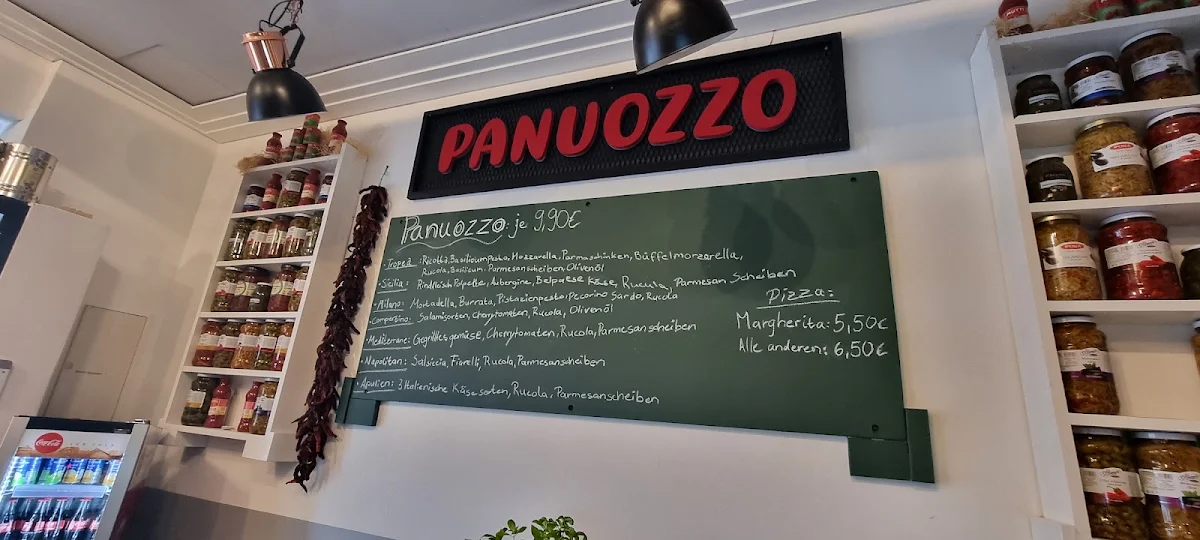 PANUOZZO
Panuozzo: je 9,90€
• Tropea: Ricotta, Basilicumpesto, Mozzarella, Parmaschinken, Büffelmorzarella,
Rucola, Basilicum. Parmesanscheiben Olivenöl
• Sicilia: Rindfleisch Polpette, Aubergine, Belpaese Käse, Rucula, Parmesan Scheiben
• Milano: Mortadella, Burrata, Pistazienpesto, Pecorino Sardo, Rucola
Salamisorten, Cherrytomaten, Rucola, Olivenöl
• Mediterrane: Gegrilltes gemüse, Cherrytomaten, Rucola, Parmesanscheiben
• Napolitan: Salsiccia, Fiorelli, Rucola, Parmesanscheiben
• Apulien: 3 Italienische Käsesorten, Rucola, Parmesanscheiben
Pizza:
Margherita: 5,50€
Alle anderen: 6,50€
Coca-Cola